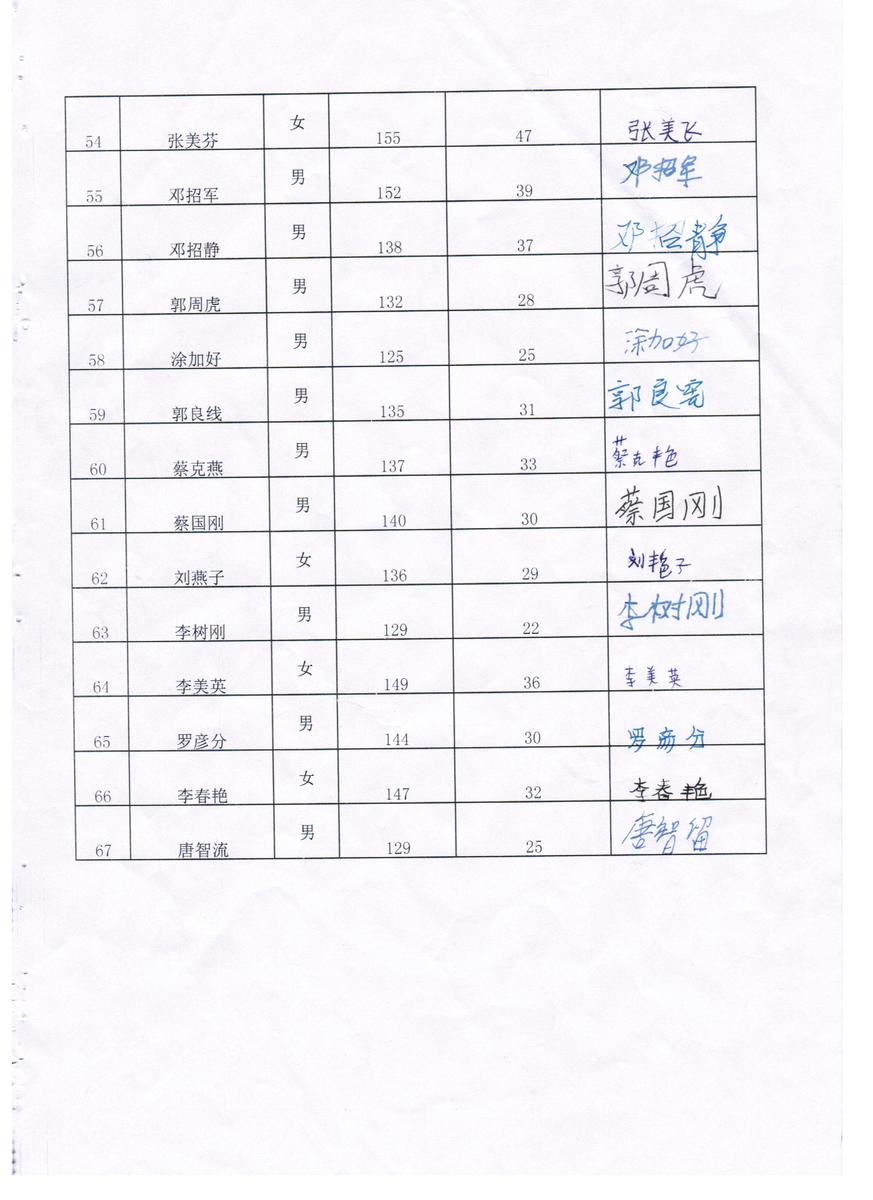 54 张美芬 女 155 47 张美飞
55 邓招军 男 152 39 邓招军
56 邓招静 男 138 37 邓招静
57 郭周虎 男 132 28 郭周虎
58 涂加好 男 125 25 涂加好
59 郭良线 男 135 31 郭良
60 蔡克燕 男 137 33 蔡克艳
61 蔡国刚 男 140 30 蔡国刚
62 刘燕子 女 136 29 刘艳子
63 李树刚 男 129 22 李树刚
64 李美英 女 149 36 李美英
65 罗彦分 男 144 30 罗彦分
66 李春艳 女 147 32 李春艳
67 唐智流 男 129 25 唐智留